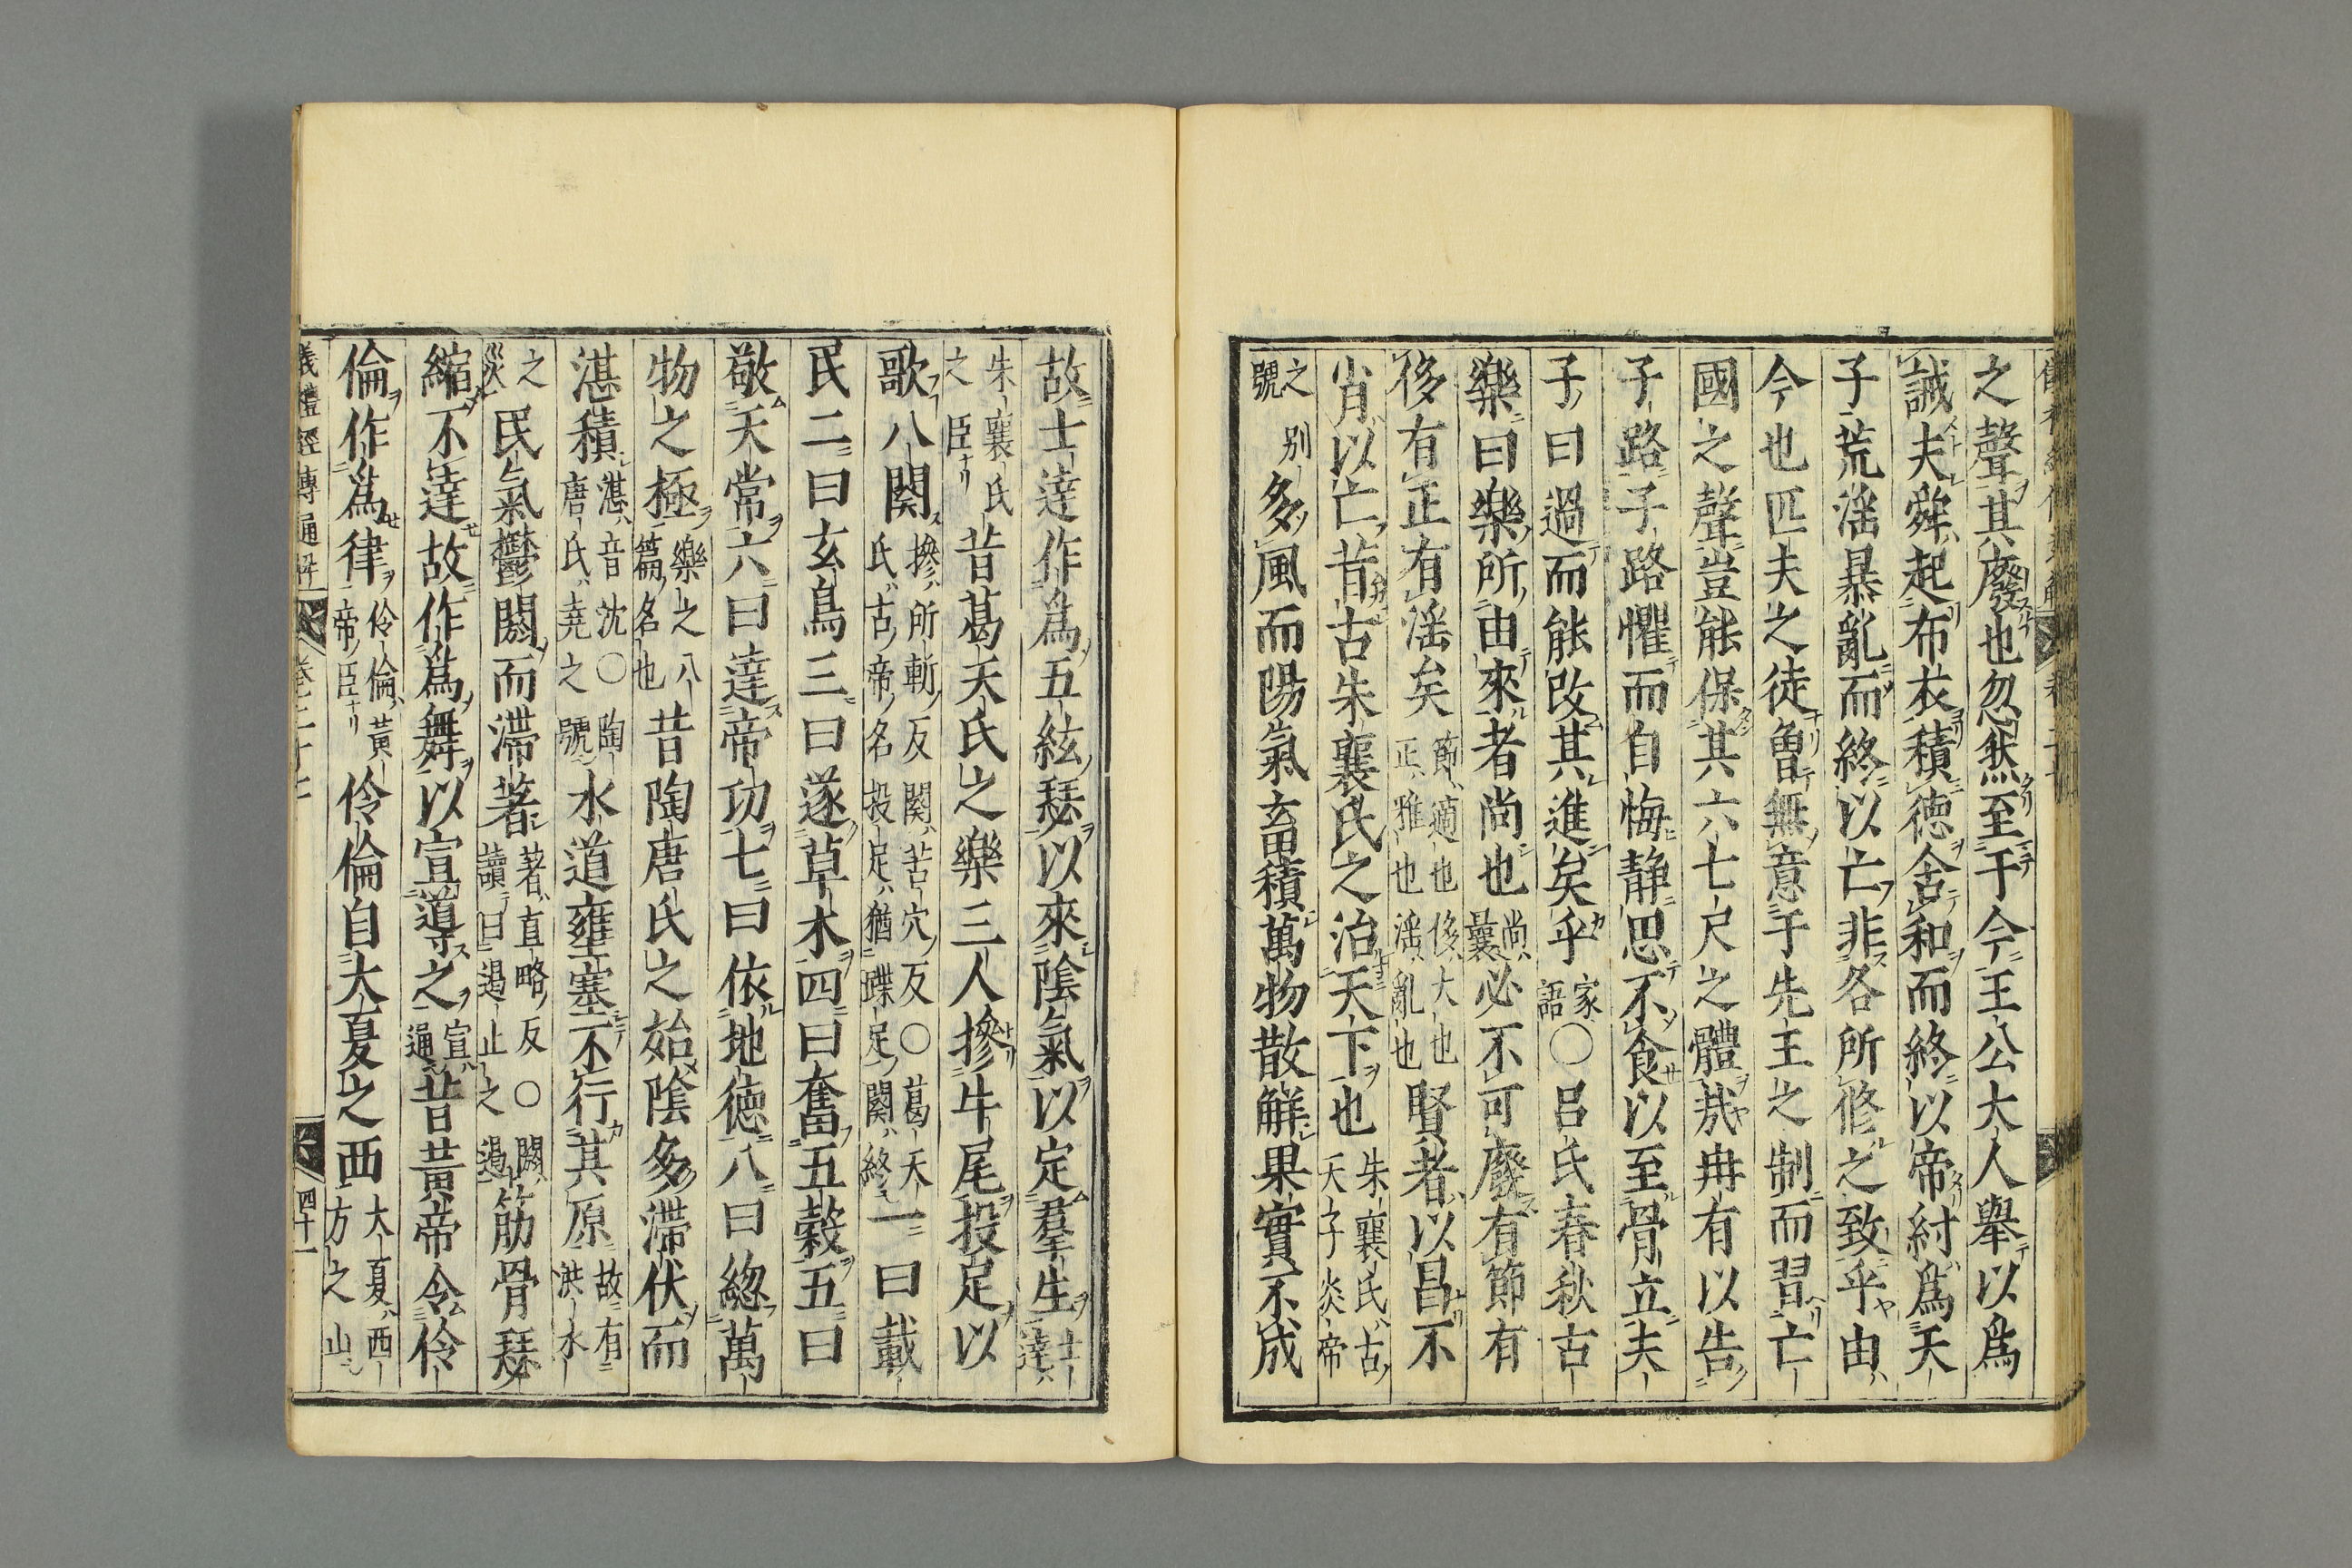 之聲其廢也忽然至于今王公大人舉以爲
誡夫舜起布衣積德含和而終以帝紂爲天
子荒滛暴亂而終以亡非各所修之致乎由
今也匹夫之徒曽無意于先王之制而習亡
國之聲豈能保其六七尺之體㦲冉有以告
子路子路懼而自悔静思不食以至骨立夫
子曰過而能改其進矣乎家語〇呂氏春秋古
樂曰樂所由來者尚也尚曩必不可廢有節有
侈有正有滛矣節適也正雅也侈大也滛亂也賢者以昌不
肖以亡昔古朱襄氏之治天下也朱襄氏古天子炎帝
之別號多風而陽氣畜積萬物散解果實不成
故士達作爲五絃瑟以來陰氣以定羣生士達
朱襄氏之臣昔葛天氏之樂三人摻牛尾投足以
歌八闋摻所斬反闋苦穴反〇葛天氏古帝名投足猶蹀足闋終一曰載
民二曰玄鳥三曰遂草木四曰奮五穀五曰
敬天常六曰達帝功七曰依地德八曰緫萬
物之極樂之八篇名也昔陶唐氏之始陰多滯伏而
湛積湛音沈〇陶唐氏堯之號水道壅塞不行其原故有洪水
之災民氣鬱閼而滯著著直略反〇閼讀曰遏止之遏筋骨瑟
縮不達故作爲舞以宣導之宣通昔黃帝令伶
倫作爲律伶倫黃帝臣伶倫自大夏之西大夏西方之山
儀禮經傳通解 卷二十七 四十一